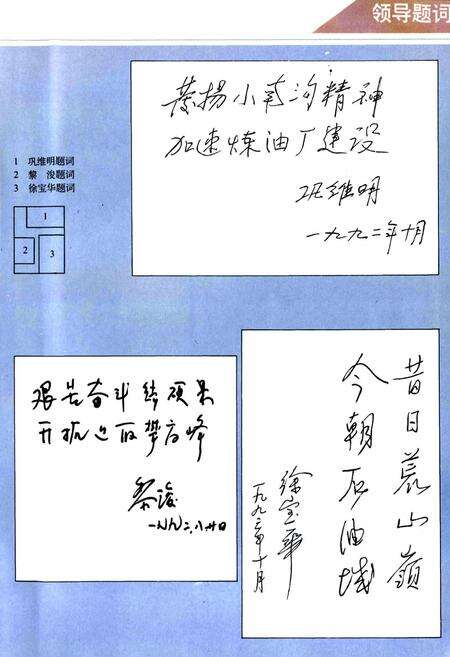 领导题词
发扬小苇沟精神
加速炼油厂建设
巩维明
一九九二年十月
1 巩维明题词
2 黎 浚题词
3 徐宝华题词
1
2
3
艰苦奋斗结硕果
开拓进取攀高峰
黎浚
一九九二.八.廿日
昔日荒山岭
今朝石油城
徐宝华
一九九二年十月